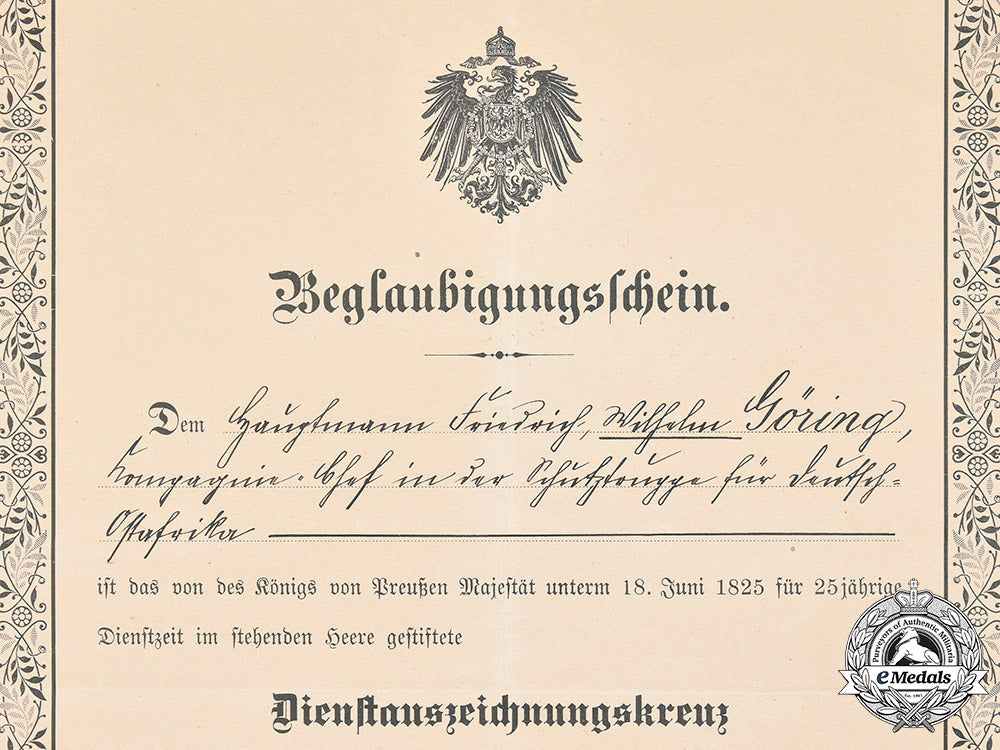 Beglaubigungsschein.
Dem Hauptmann Friedrich, Wilhelm Göring,
Kompagnie-Chef in der Schutztruppe für Deutsch-
Ostafrika
ist das von des Königs von Preußen Majestät unterm 18. Juni 1825 für 25jährige
Dienstzeit im stehenden Heere gestiftete
Dienstauszeichnungskreuz
Purveyors of Authentic Militaria
eMedals